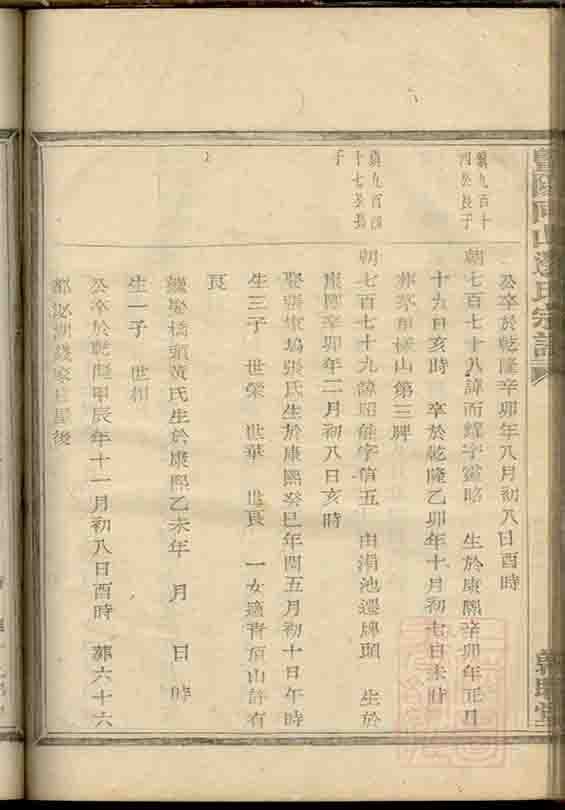 暨陽同山邊氏宗譜
公卒於乾隆辛卯年八月初八日酉時
鎮九百十
四公長子
朝七百七十八諱而鏗字 生於康熙辛卯年正月
十六日亥時 卒於乾隆乙卯年十月初七日未時
葬茅 山第三牌
鎮九百四
十七公長
子
朝七百七十九諱昭 字信五 由湄池遷牌頭 生於
康熙辛卯年二月初八日亥時
娶張家塢張氏生於康熙癸巳年閏五月初十日午時
生三子 世榮 世華 世良 一女適青頂山許有
良
繼娶橋頭黃氏生於康熙乙未年 月 日 時
生一子 世相
公卒於乾隆甲辰年十一月初八日酉時 葬六十六
都 錢家 屋後